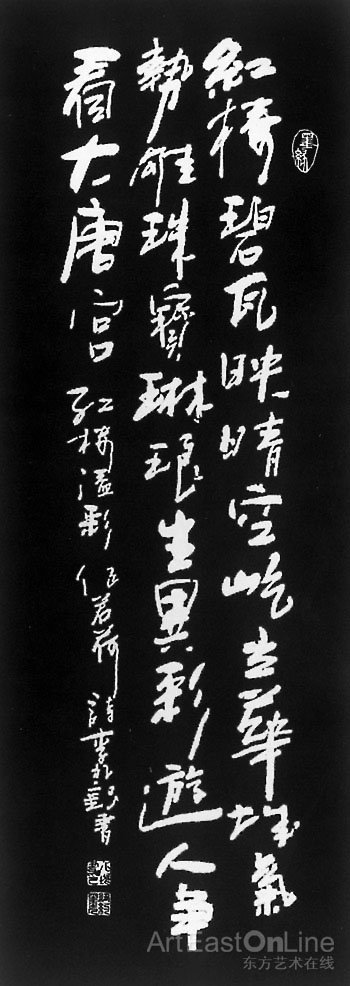 紅楼碧瓦映晴空屹立華城氣
勢雄珠寶琳琅生異彩遊人爭
看大唐宫
红楼溢彩 任若荷 詩 李 書
Art East OnLine
东方艺术在线